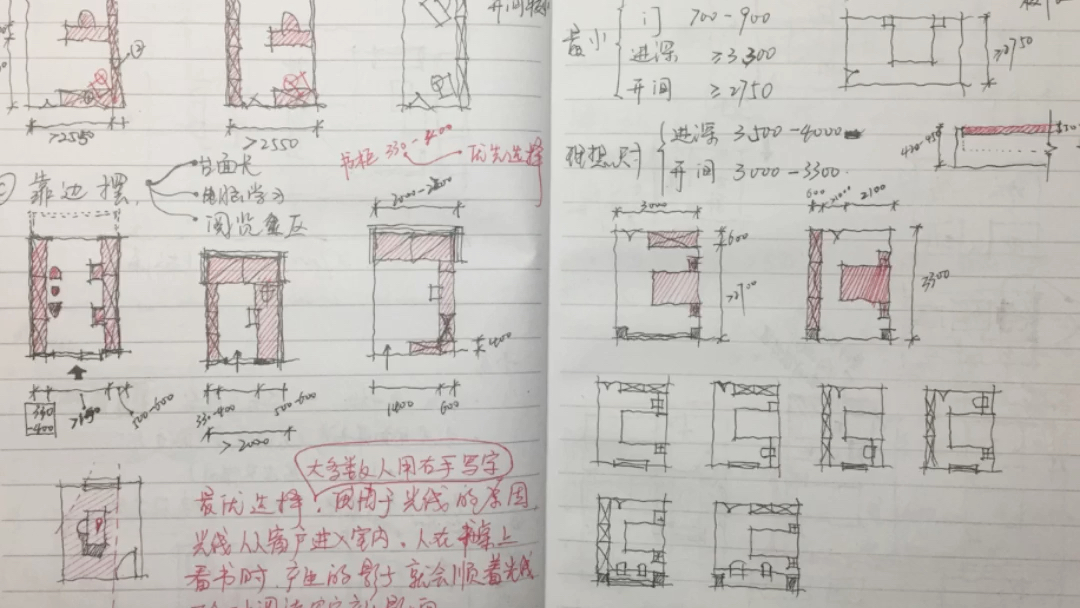 ②
>2550
>2550
书柜 330-400
优先选择
靠边摆
台面大
电脑学习
阅览区
330
400
500-600
330-400
500-600
>2000
≥400
1400
600
大多数人用右手写字
最优选择，因为由于光线的原因
光线从窗户进入室内，人在书桌上
看书时，产生的影子就会顺着光线
最小
门 700-900
进深 ≥3300
开间 ≥2750
≥2750
理想尺寸
进深 3500-4000
开间 3000-3300
3000
600
>2700
600
2100
3300